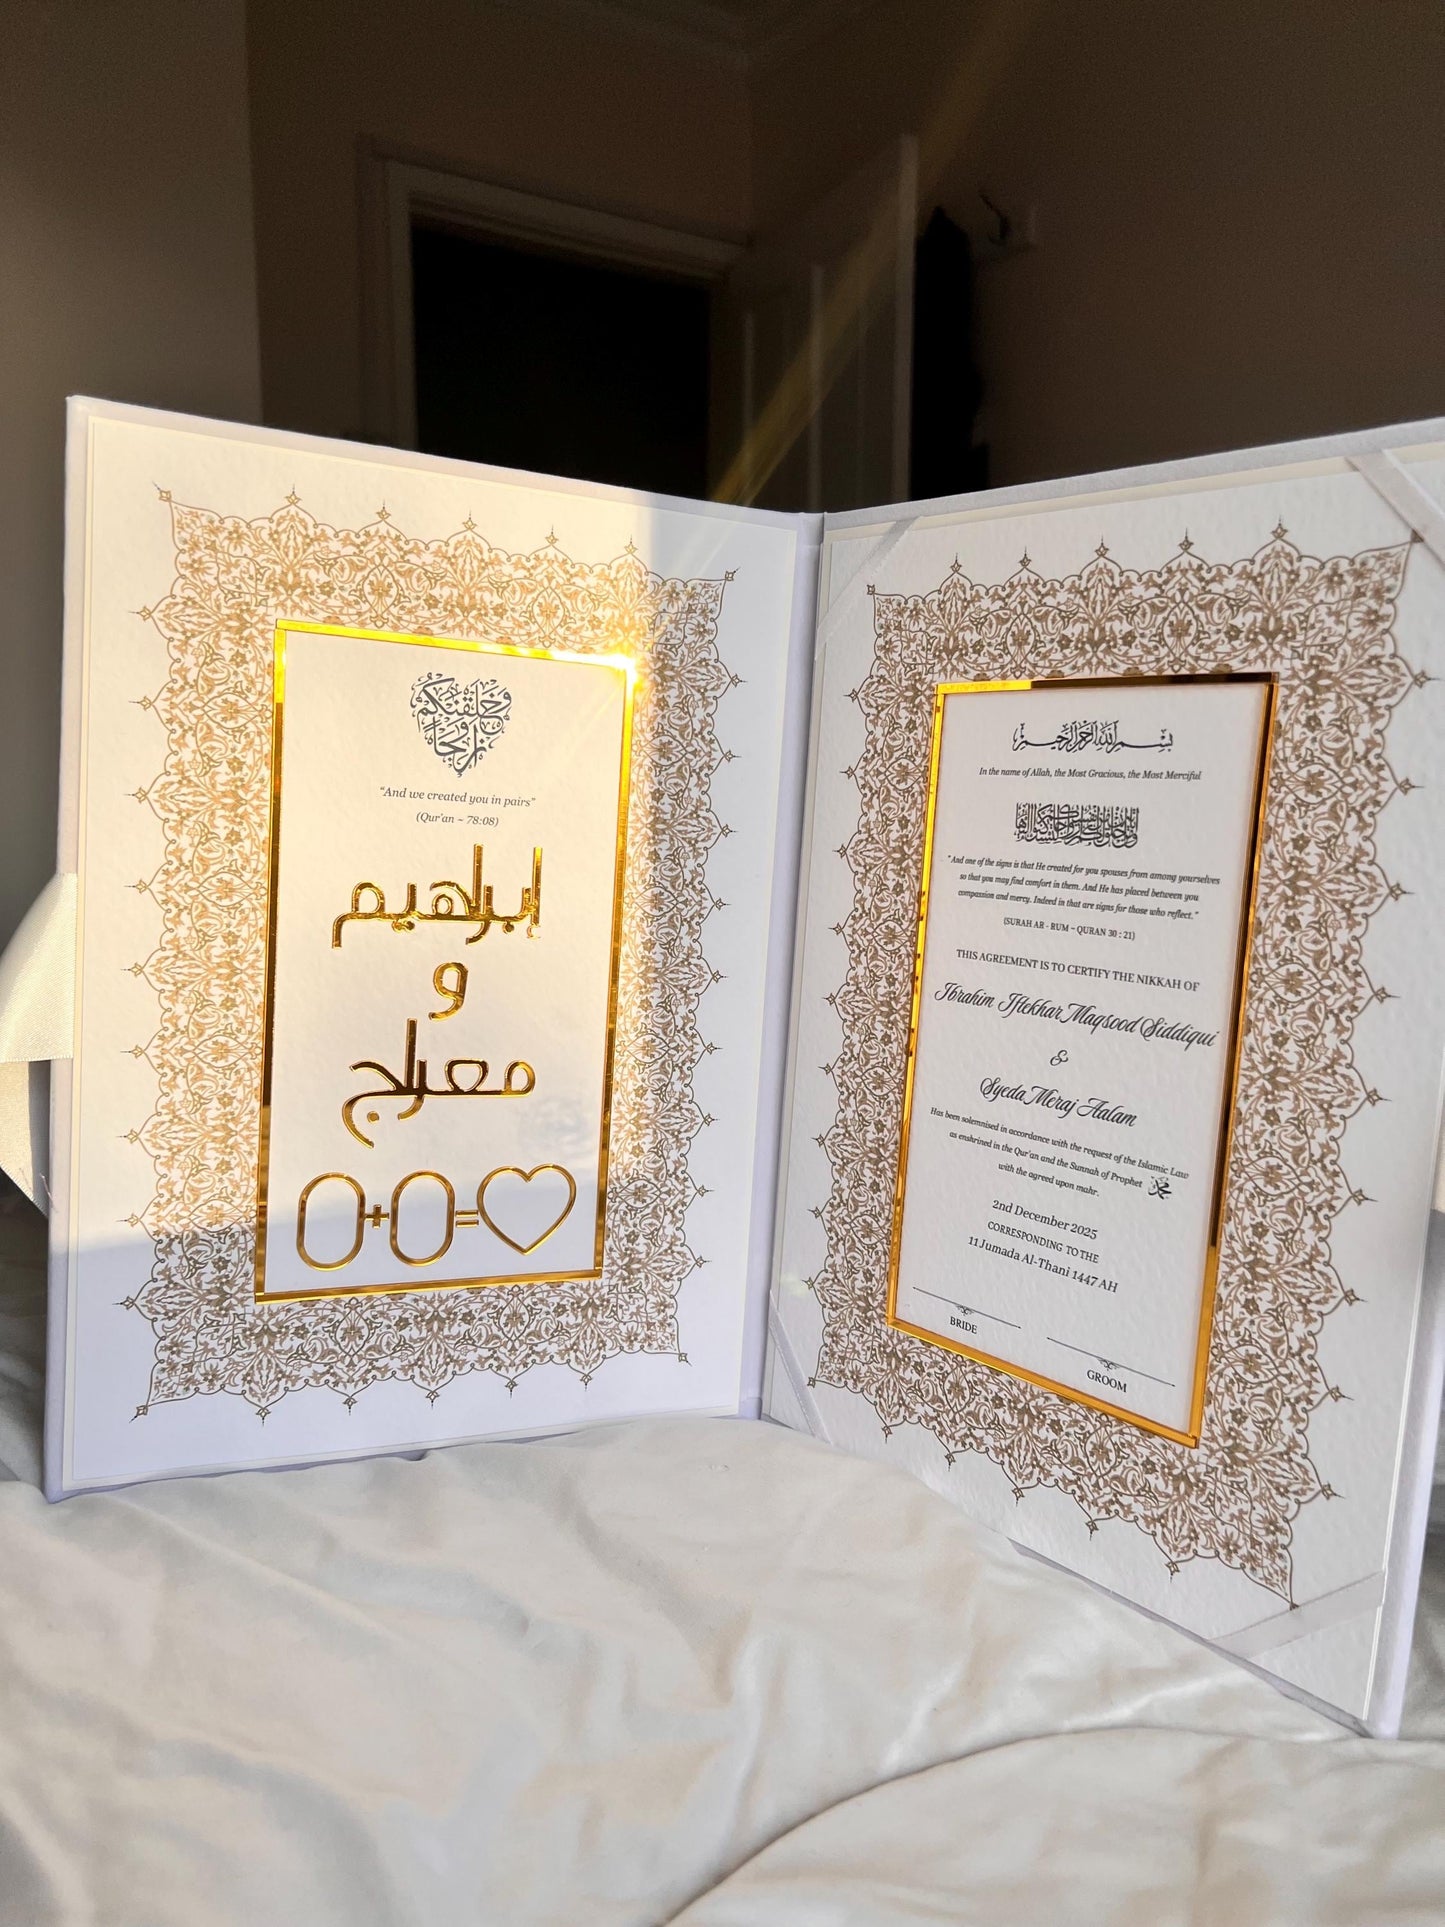 وخلقنكم
أزوجا
“And we created you in pairs”
(Qur'an ~ 78:08)
إبراهيم
و
معراج
0+0=♡
بسم الله الرحمن الرحيم
In the name of Allah, the Most Gracious, the Most Merciful
“And one of the signs is that He created for you spouses from among yourselves
so that you may find comfort in them. And He has placed between you
compassion and mercy. Indeed in that are signs for those who reflect.”
(SURAH AR - RUM ~ QURAN 30 : 21)
THIS AGREEMENT IS TO CERTIFY THE NIKKAH OF
Ibrahim Iftekhar Maqsood Siddiqui
&
Syeda Meraj Aalam
Has been solemnised in accordance with the request of the Islamic Law
as enshrined in the Qur'an and the Sunnah of Prophet محمد
with the agreed upon mahr.
2nd December 2025
CORRESPONDING TO THE
11 Jumada Al-Thani 1447 AH
BRIDE
GROOM